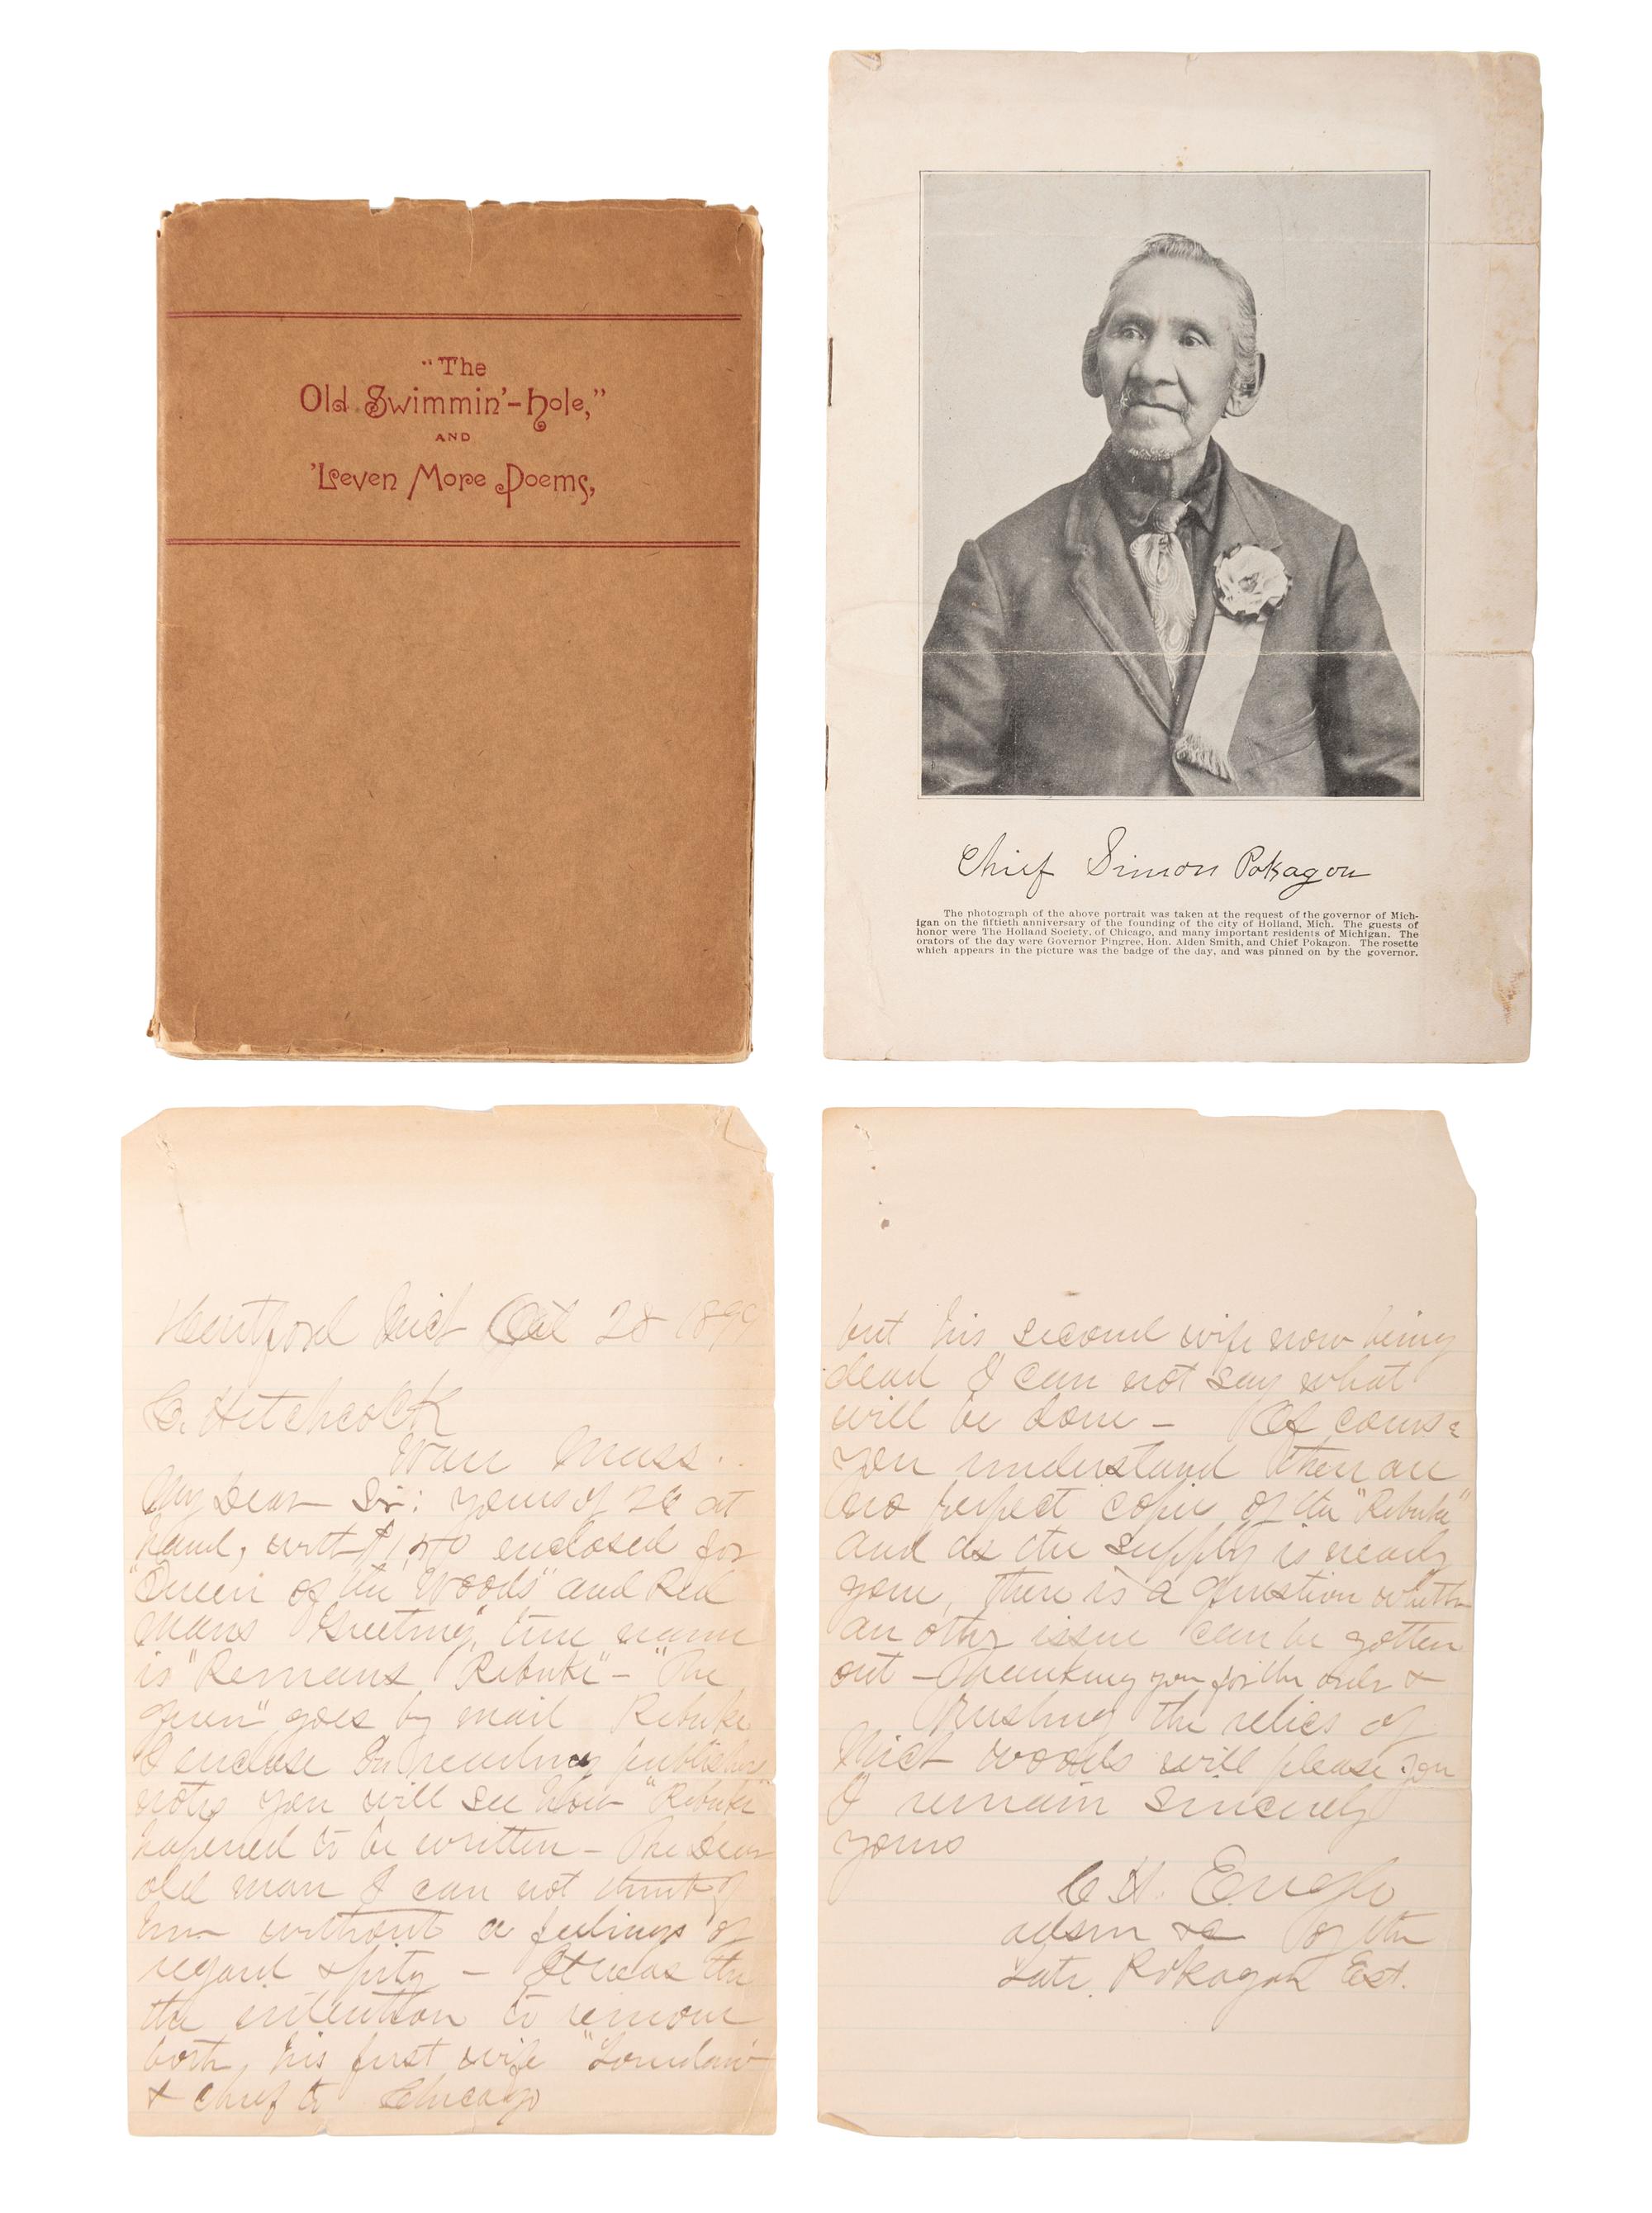 "The
Old Swimmin'-hole,"
AND
'Leven More Poems,
Chief Simon Pokagon
The photograph of the above portrait was taken at the request of the governor of Mich-
igan on the fiftieth anniversary of the founding of the city of Holland, Mich. The guests of
honor were The Holland Society, of Chicago, and many important residents of Michigan. The
orators of the day were Governor Pingree, Hon. Alden Smith, and Chief Pokagon. The rosette
which appears in the picture was the badge of the day, and was pinned on by the governor.
Hartford Mich Oct 28 1899
C. Hitchcock
Ware Mass.
My Dear Sir: yours of 26 at
hand, with $1.50 enclosed for
"Queen of the Woods" and Red
Mans "Greeting", true name
is "Remans "Rebuke" - "The
queen" goes by mail Rebuke
I enclose On reading publishers
notes you will see how "Rebuke"
hapened to be written - The Dear
old man I can not think of
him without a feelings of
regard & pity - It was the
the intention to remove
both, his first wife "Lonidaw"
& chief to Chicago
but his second wife now being
dead I can not say what
will be done - Of course
you understand there are
no perfect copies of the "Rebuke"
and as the supply is nearly
gone, there is a question whether
an other issue can be gotten
out - Thanking you for the order &
Trusting the relics of
Mich woods will please you
I remain sincerely
yours
C. H. Engle
adsm &c for the
Late. Pokagon Est.